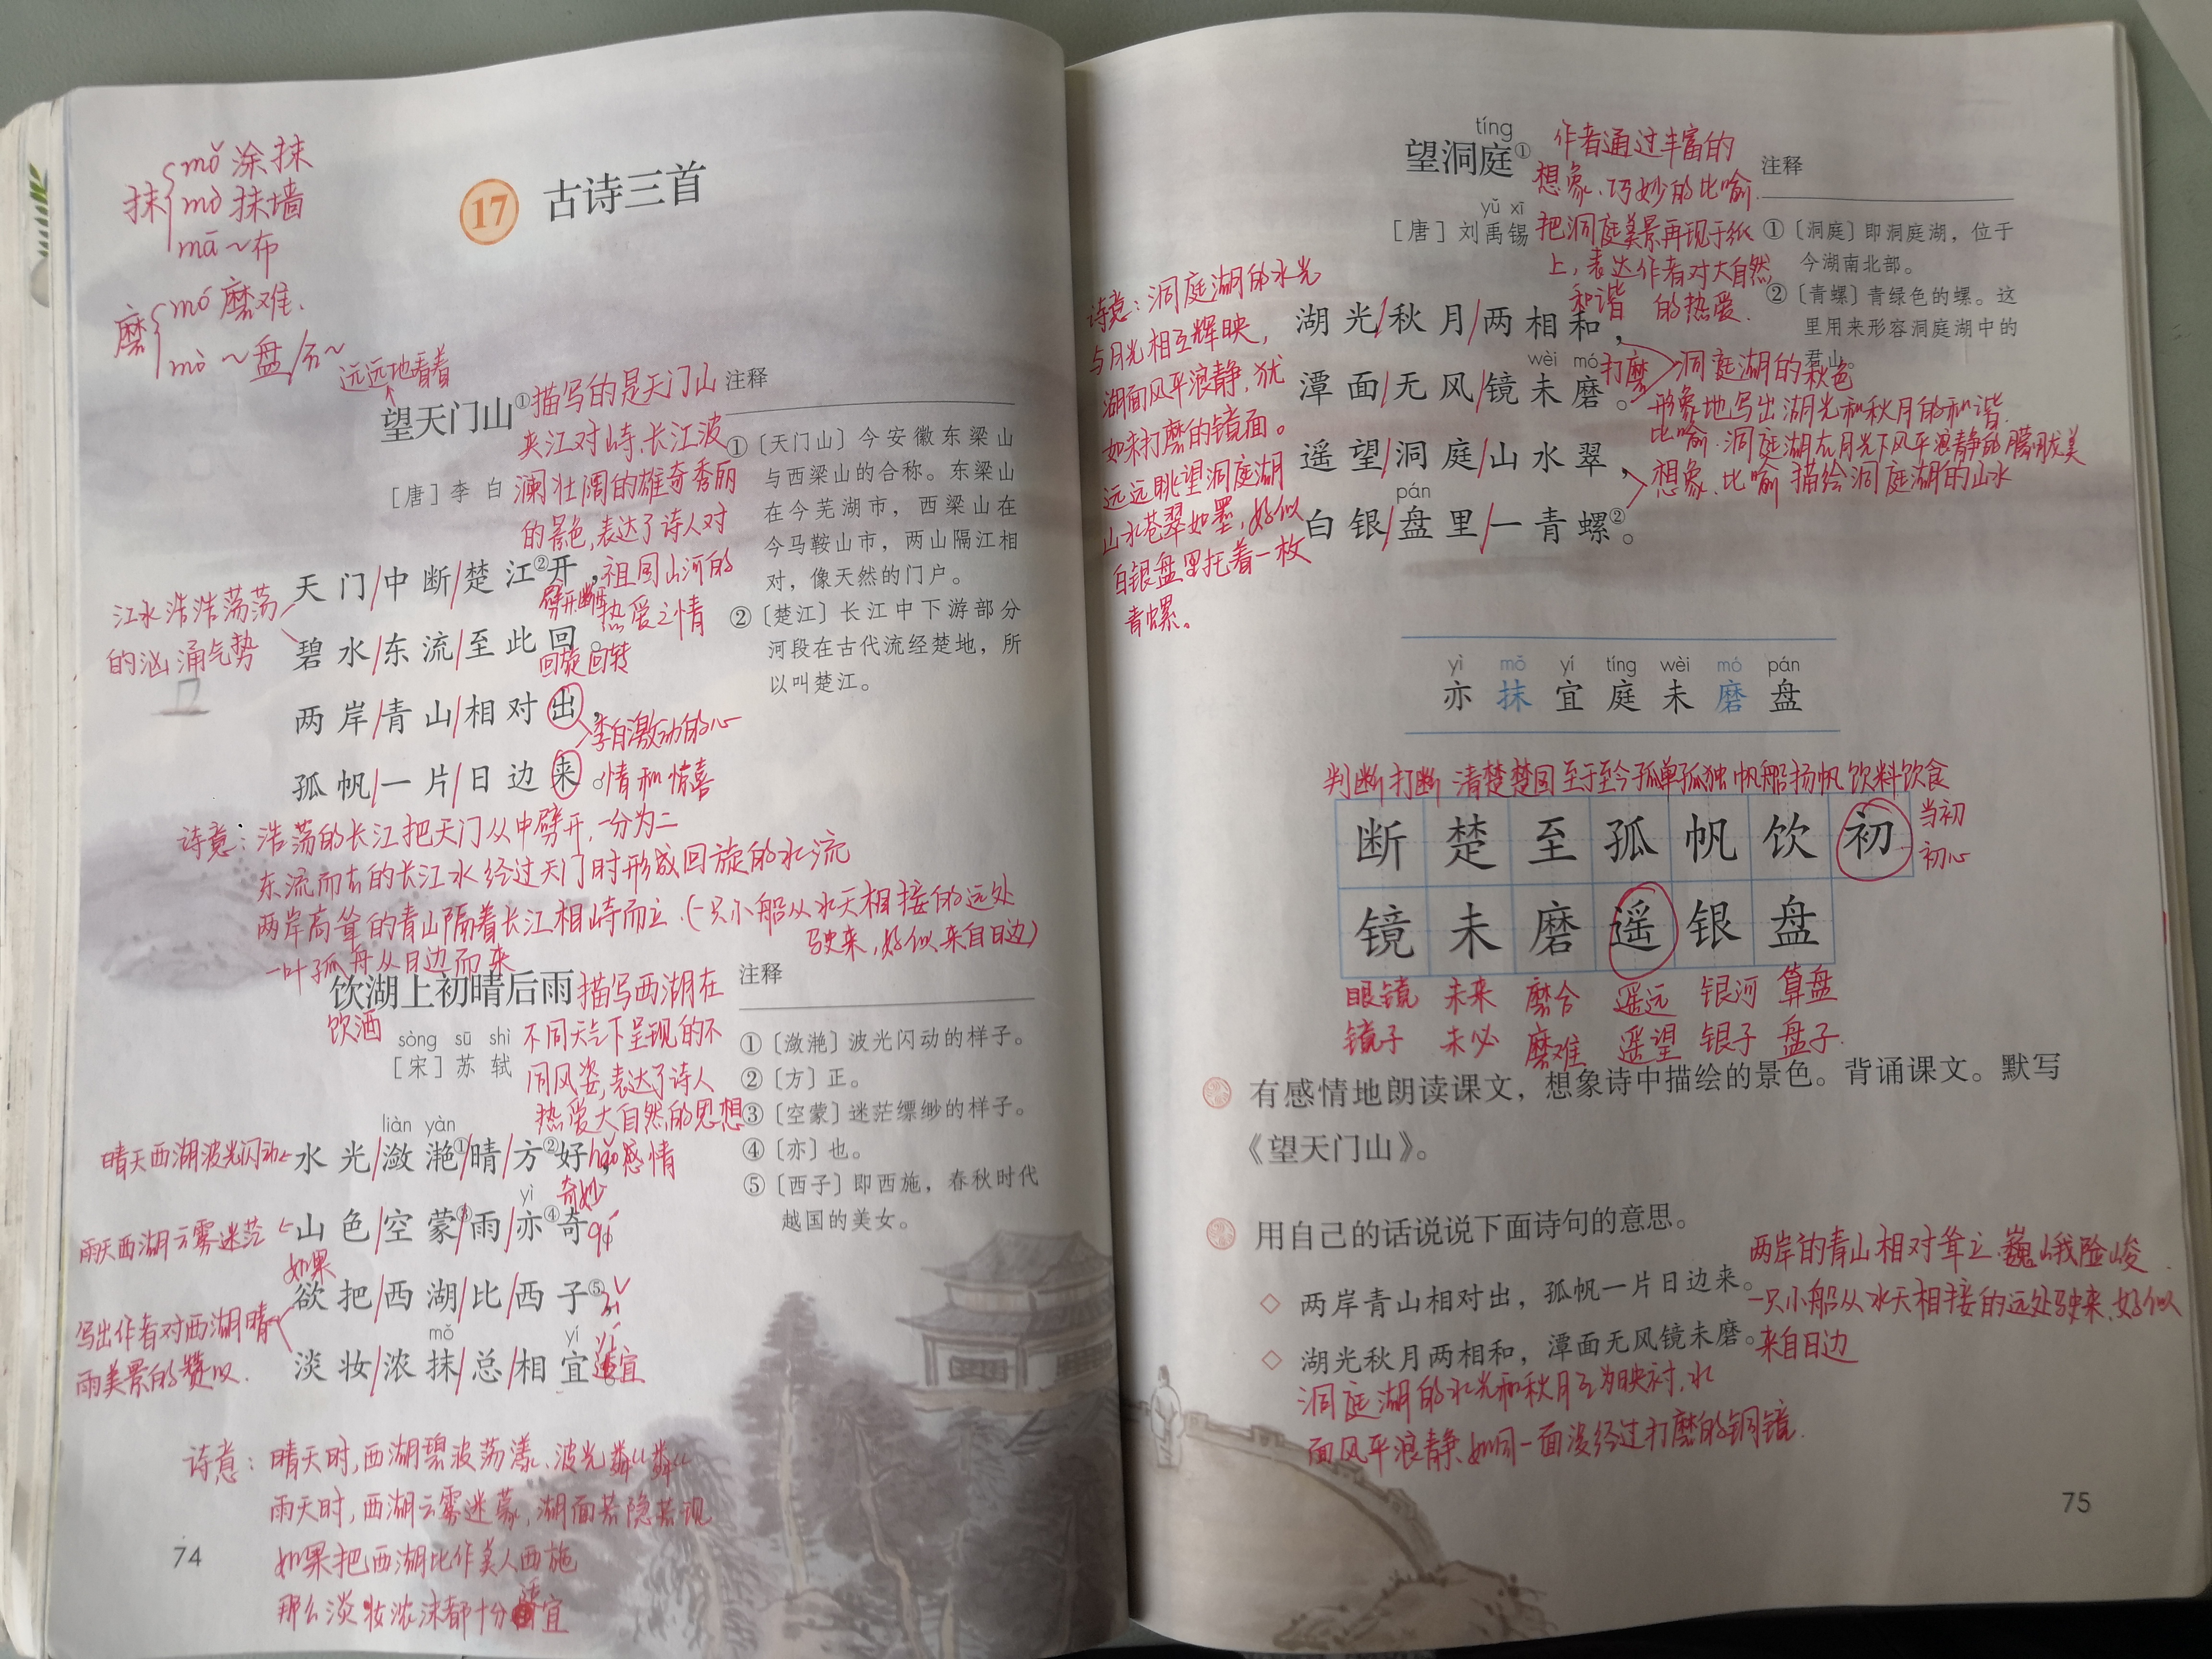 抹 mǒ 涂抹
mò 抹墙
mā ~布
磨 mó 磨难.
mò ~盘/石~
17 古诗三首
远远地看着
望天门山①
[唐]李白
描写的是天门山
夹江对峙、长江波
澜壮阔的雄奇秀丽
的景色,表达了诗人对
祖国山河的
热爱之情
天门/中断/楚江②开，
劈开,断
碧水/东流/至此回。
回旋 回转
两岸/青山/相对出，
孤帆/一片/日边来。
江水浩浩荡荡
的汹涌气势
李白激动的心
情和惊喜
注释
①〔天门山〕今安徽东梁山
与西梁山的合称。东梁山
在今芜湖市，西梁山在
今马鞍山市，两山隔江相
对，像天然的门户。
②〔楚江〕长江中下游部分
河段在古代流经楚地，所
以叫楚江。
诗意：浩荡的长江把天门从中劈开,一分为二
东流而去的长江水经过天门时形成回旋的水流
两岸高耸的青山隔着长江相峙而立.(一只小船从水天相接的远处
驶来,好似来自日边)
一叶孤舟从日边而来
饮湖上初晴后雨
饮酒
sòng sū shì
[宋]苏轼
描写西湖在
不同天气下呈现的不
同风姿,表达了诗人
热爱大自然的思想
感情
liàn yàn
水光/潋滟①/晴/方②好，
hǎo
晴天西湖波光闪动
yì
奇妙
山色/空蒙③/雨/亦④奇
qí
雨天西湖云雾迷茫
如果
欲把/西湖/比/西子⑤，
mǒ yí
淡妆/浓抹/总/相宜
适宜
写出作者对西湖晴
雨美景的赞叹.
注释
①〔潋滟〕波光闪动的样子。
②〔方〕正。
③〔空蒙〕迷茫缥缈的样子。
④〔亦〕也。
⑤〔西子〕即西施，春秋时代
越国的美女。
诗意：晴天时,西湖碧波荡漾、波光粼粼
雨天时,西湖云雾迷蒙,湖面若隐若现
如果把西湖比作美人西施
那么淡妆浓沫都十分适宜
74
tíng
望洞庭①
yǔ xī
[唐]刘禹锡
作者通过丰富的
想象、巧妙的比喻
把洞庭美景再现于纸
上,表达作者对大自然
的热爱.
和谐
湖光/秋月/两相和，
wèi mó
潭面/无风/镜未磨。
打磨
遥望/洞庭/山水翠，
pán
白银/盘里/一青螺②。
注释
①〔洞庭〕即洞庭湖，位于
今湖南北部。
②〔青螺〕青绿色的螺。这
里用来形容洞庭湖中的
君山。
洞庭湖的秋色
形象地写出湖光和秋月的和谐.
比喻.洞庭湖在月光下风平浪静的朦胧美
想象、比喻 描绘洞庭湖的山水
诗意：洞庭湖的水光
与月光相互辉映,
湖面风平浪静,犹
如未打磨的镜面。
远远眺望洞庭湖
山水苍翠如墨,好似
白银盘里托着一枚
青螺。
yì mǒ yí tíng wèi mó pán
亦 抹 宜 庭 未 磨 盘
判断 打断 清楚 楚国 至于 至今 孤单 孤独 帆船 扬帆 饮料 饮食
断 楚 至 孤 帆 饮 初
当初
初心
镜 未 磨 遥 银 盘
眼镜 未来 磨合 遥远 银河 算盘
镜子 未必 磨难 遥望 银子 盘子.
有感情地朗读课文，想象诗中描绘的景色。背诵课文。默写
《望天门山》。
用自己的话说说下面诗句的意思。
两岸青山相对出，孤帆一片日边来。
两岸的青山相对耸立、巍峨险峻.
一只小船从水天相接的远处驶来,好似
来自日边
湖光秋月两相和，潭面无风镜未磨。
洞庭湖的水光和秋月互为映衬,水
面风平浪静,如同一面没经过打磨的铜镜.
75